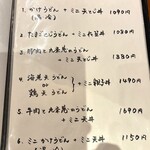 1. かけうどん + ミニ天とじ丼 1090円
2. たまごとじうどん + ミニ天丼
3. 豚肉と九条葱のうどん
+ ミニ天とじ丼 1380円
4. 海老天うどん
or + ミニ親子丼 1490円
鶏天うどん
5. 牛肉と九条葱のうどん
+ ミニ天丼 1690円
6. ミニかけうどん + 天丼 1150円